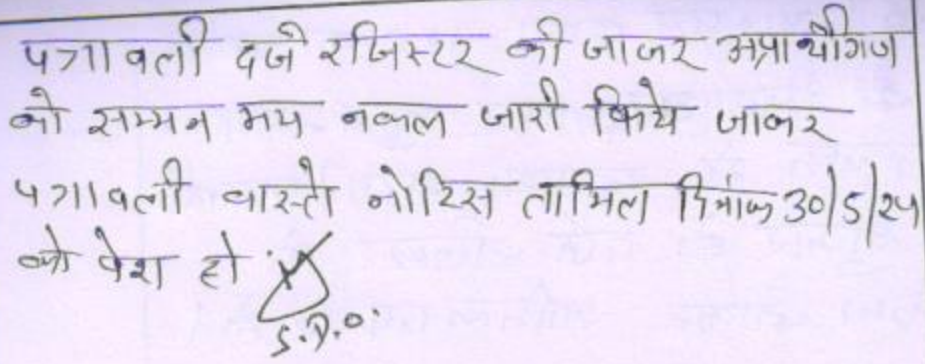 पत्रावली दर्ज रजिस्टर की जाकर अप्रार्थीगण
को सम्मन मय नकल जारी किये जाकर
पत्रावली वास्ते नोटिस तामिल दिनांक 30/5/24
को पेश हो
S.D.O.